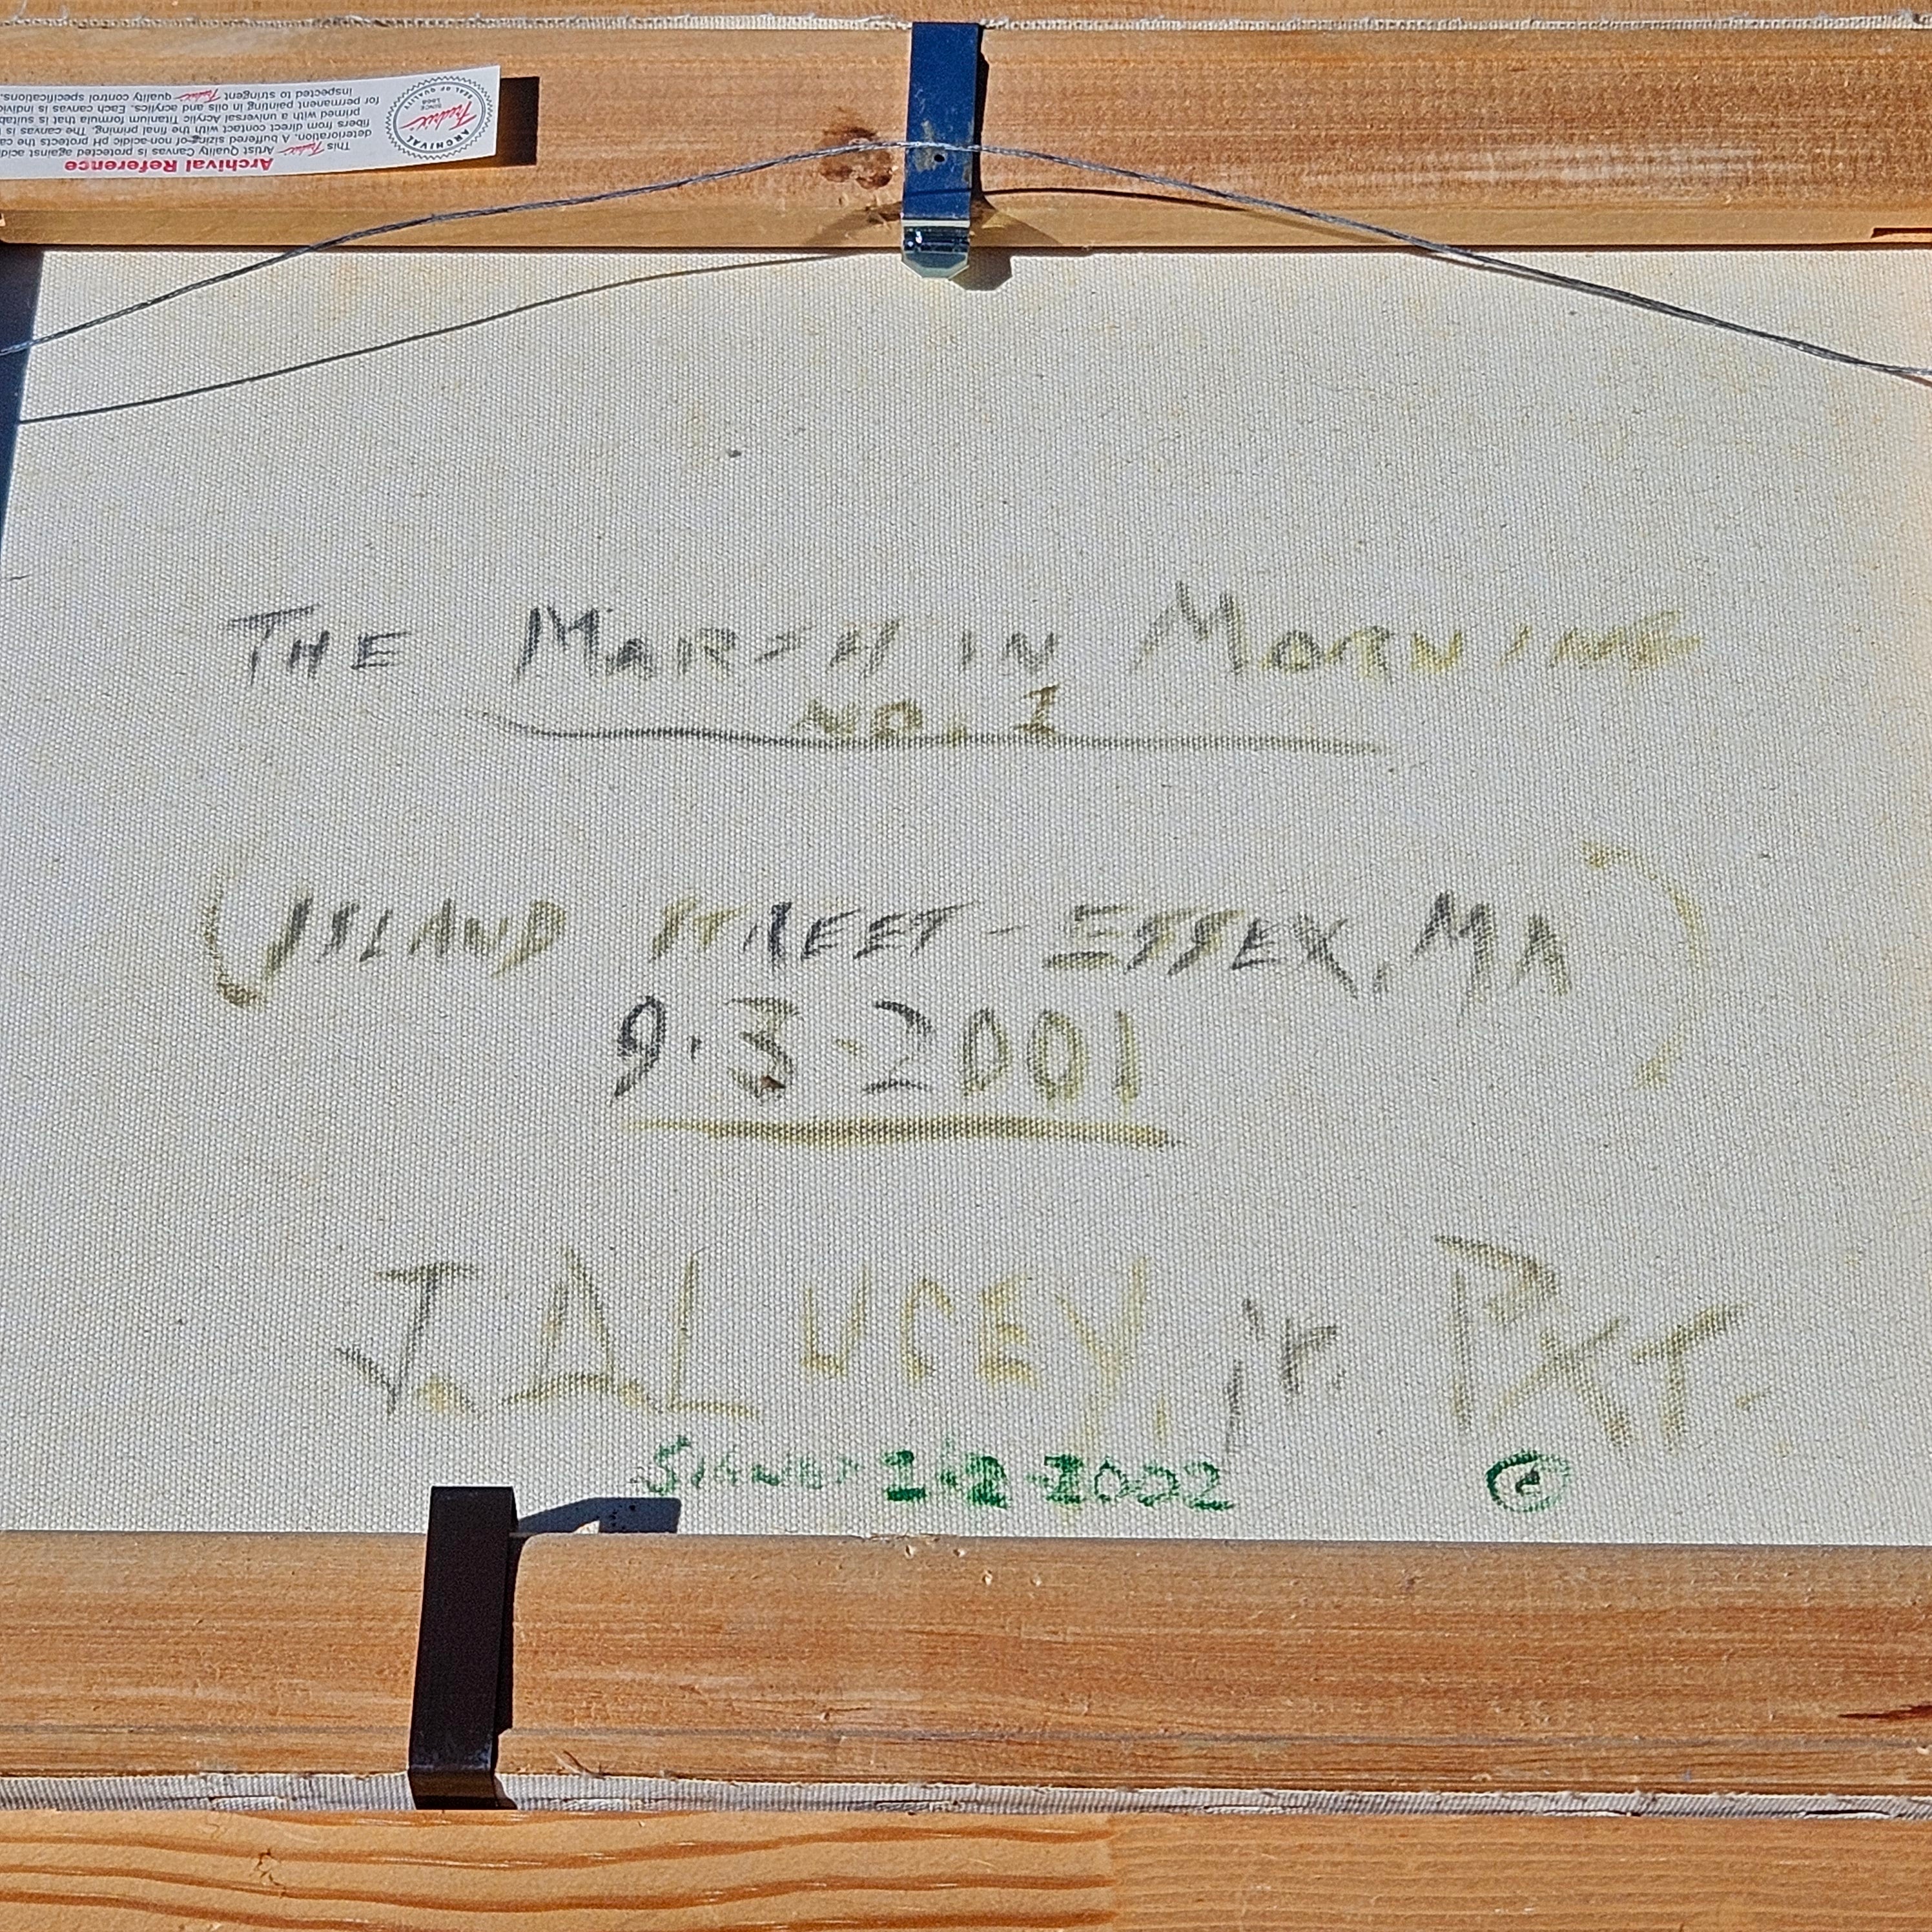 Archival Reference
This Fredrix Artist Quality Canvas is protected against acid
deterioration. A buffered sizing of non-acidic pH protects the ca
fibers from direct contact with the final priming. The canvas is
primed with a universal Acrylic Titanium formula that is suitab
for permanent painting in oils and acrylics. Each canvas is individ
inspected to stringent Fredrix quality control specifications.
ARCHIVAL
Fredrix
SINCE 1868
SEAL OF QUALITY
THE MARSH IN MORNING
NO. I
(ISLAND STREET - ESSEX, MA)
9.3-2001
J. A. LUCEY, jr. PXT.
SIGNED 1-2-2002